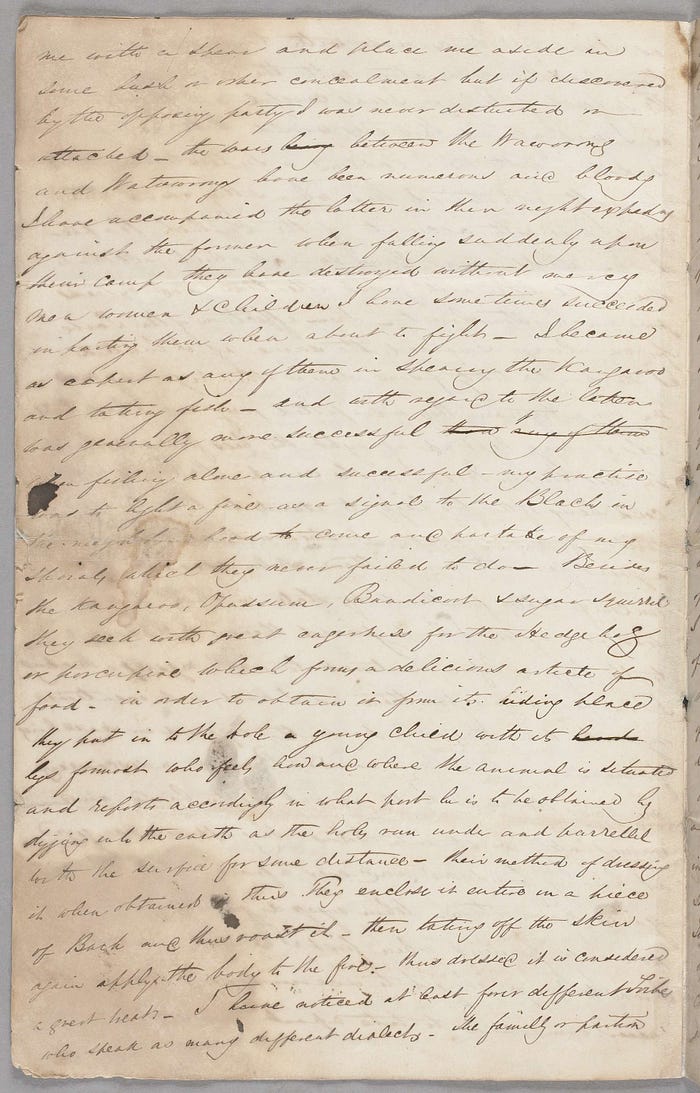 me with a spear and place me aside in
some bush or other concealment but if discovered
by the opposing party I was never disturbed or
attacked – the wars being between the Waworong
and Watowrongs have been numerous and bloody
I have accompanied the latter in their night expedns
against the former when falling suddenly upon
their camp they have destroyed without mercy
men women & children I have sometimes succeeded
in parting them when about to fight – I became
as expert as any of them in spearing the Kangaroo
and taking fish – and with regard to the latter
was generally more successful than any of them
fishing alone and successful – my practise
was to light a fire as a signal to the Blacks in
the neighbourhood to come and partake of my
spoils which they never failed to do – Besides
the Kangaroo, Opossum, Bandicoot & sugar squirrel
they seek with great eagerness for the Hedge hog
or porcupine which forms a delicious article of
food – in order to obtain it from its hiding place
they put in to the hole a young child with its
legs formost who feels how and where the animal is situated
and reports accordingly in what part he is to be obtained by
digging into the earth as the holes run under and barrellel
with the surface for some distance – their method of dressing
it when obtained is thus They enclose it entire in a piece
of Bark and thus roast it – then taking off the skin
again apply the body to the fire – thus dressed it is considered
a great treat – I have noticed at least four different Tribes
who speak as many different dialects – the family or portion